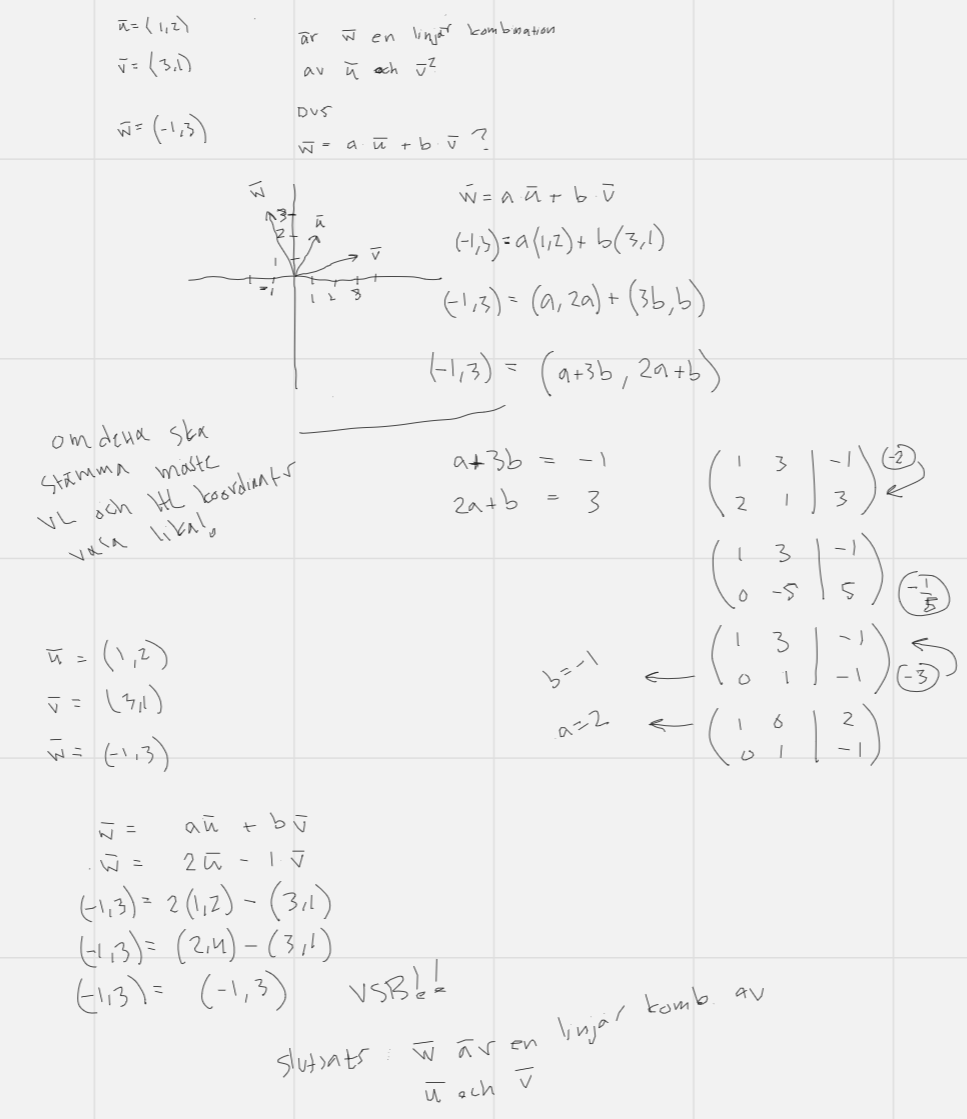 ū = (1,2)
v̄ = (3,1)
w̄ = (-1,3)
är w̄ en linjär kombination
av ū och v̄?
DVS
w̄ = a·ū + b·v̄ ?
w̄
3
2
1
ū
v̄
-1 1 2 3
w̄ = a·ū + b·v̄
(-1,3) = a(1,2) + b(3,1)
(-1,3) = (a, 2a) + (3b, b)
(-1,3) = (a+3b, 2a+b)
om detta ska
stämma måste
VL och HL koordinater
vara lika!
a+3b = -1
2a+b = 3
( 1 3 | -1 ) (-2)
( 2 1 | 3 )
( 1 3 | -1 )
( 0 -5 | 5 ) (-1/5)
( 1 3 | -1 )
( 0 1 | -1 ) (-3)
b=-1
( 1 0 | 2 )
( 0 1 | -1 )
a=2
ū = (1,2)
v̄ = (3,1)
w̄ = (-1,3)
w̄ = aū + bv̄
w̄ = 2ū - 1·v̄
(-1,3) = 2(1,2) - (3,1)
(-1,3) = (2,4) - (3,1)
(-1,3) = (-1,3) VSB!!
slutsats: w̄ är en linjär komb. av
ū och v̄